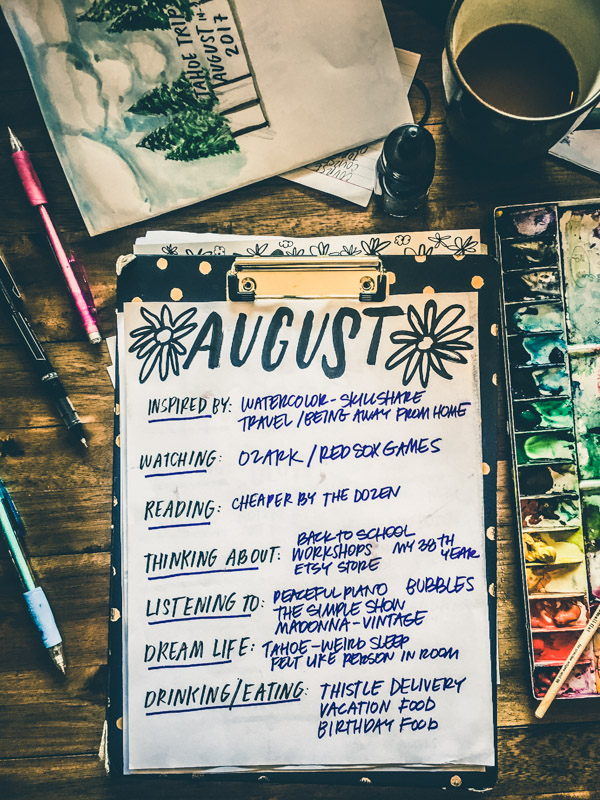 TAHOE TRIP
AUGUST
2017
AUGUST
INSPIRED BY: WATERCOLOR - SKILLSHARE
TRAVEL / BEING AWAY FROM HOME
WATCHING: OZARK / RED SOX GAMES
READING: CHEAPER BY THE DOZEN
THINKING ABOUT: BACK TO SCHOOL
WORKSHOPS MY 38TH YEAR
ETSY STORE
LISTENING TO: PEACEFUL PIANO BUBBLES
THE SIMPLE SHOW
MADONNA - VINTAGE
DREAM LIFE: TAHOE - WEIRD SLEEP
FELT LIKE PERSON IN ROOM
DRINKING/EATING: THISTLE DELIVERY
VACATION FOOD
BIRTHDAY FOOD